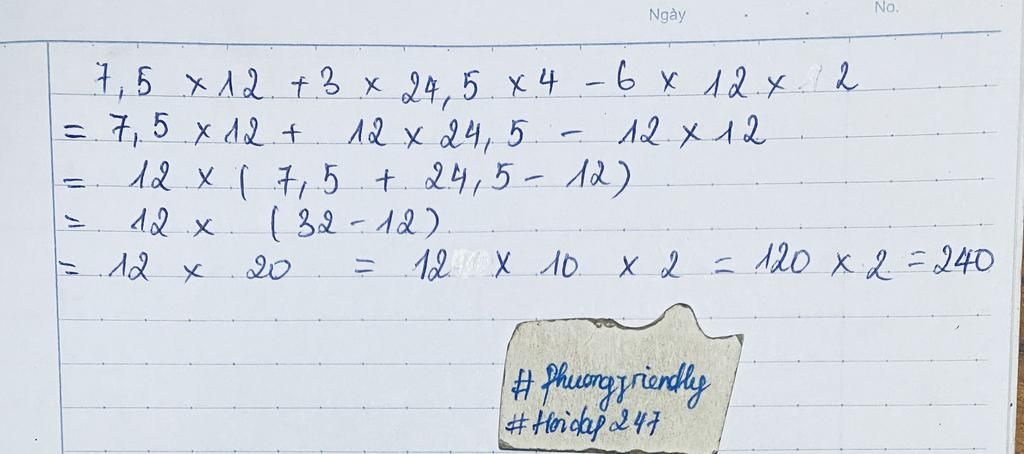 Ngày No.
7,5 × 12 + 3 × 24,5 × 4 - 6 × 12 × 2
= 7,5 × 12 + 12 × 24,5 - 12 × 12
= 12 × ( 7,5 + 24,5 - 12)
= 12 × (32 - 12)
= 12 × 20 = 12 × 10 × 2 = 120 × 2 = 240
# Phuongfriendly
# Hoidap 247